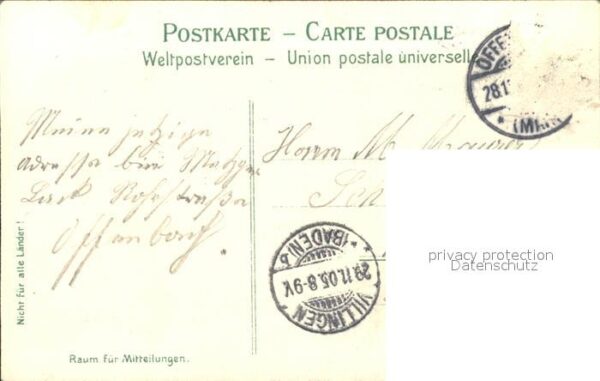 POSTKARTE – CARTE POSTALE
Weltpostverein – Union postale universelle
OFFE
28.11
* (MAIN
Meine jetzige
adressa bei Metzger
Lack Rohrstraße
Offenbach.
Herrn M.
VILLINGEN
29.11.05.8-9V.
* (BADEN) *
privacy protection
Datenschutz
Nicht für alle Länder!
Raum für Mitteilungen.